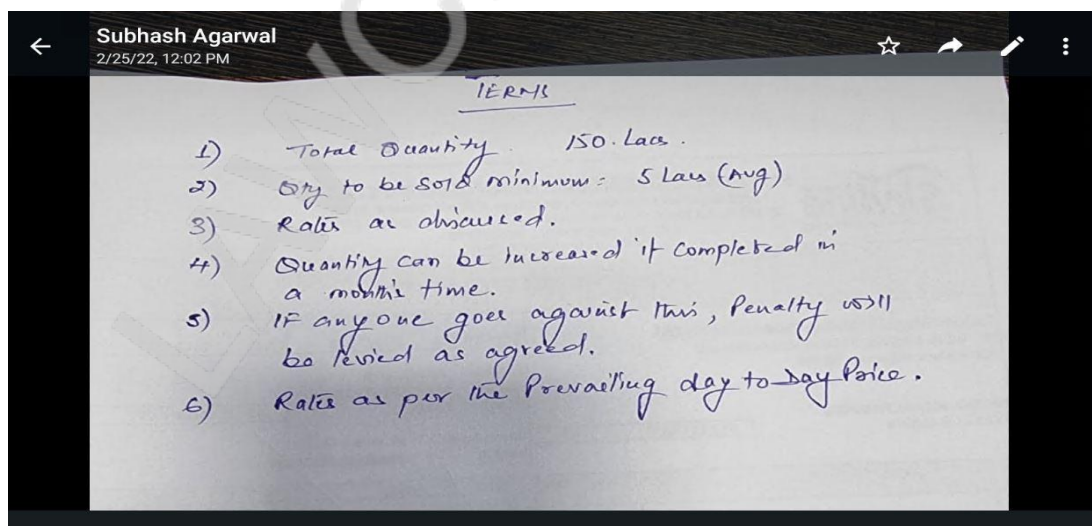 Subhash Agarwal
2/25/22, 12:02 PM
TERMS
1) Total Quantity. 150. Lacs.
2) Qty to be sold minimum = 5 Lacs (Avg)
3) Rates as discussed.
4) Quantity can be increased if completed in
a month's time.
5) IF anyone goes against this, Penalty will
be levied as agreed.
6) Rates as per the Prevailing day to Day Price.